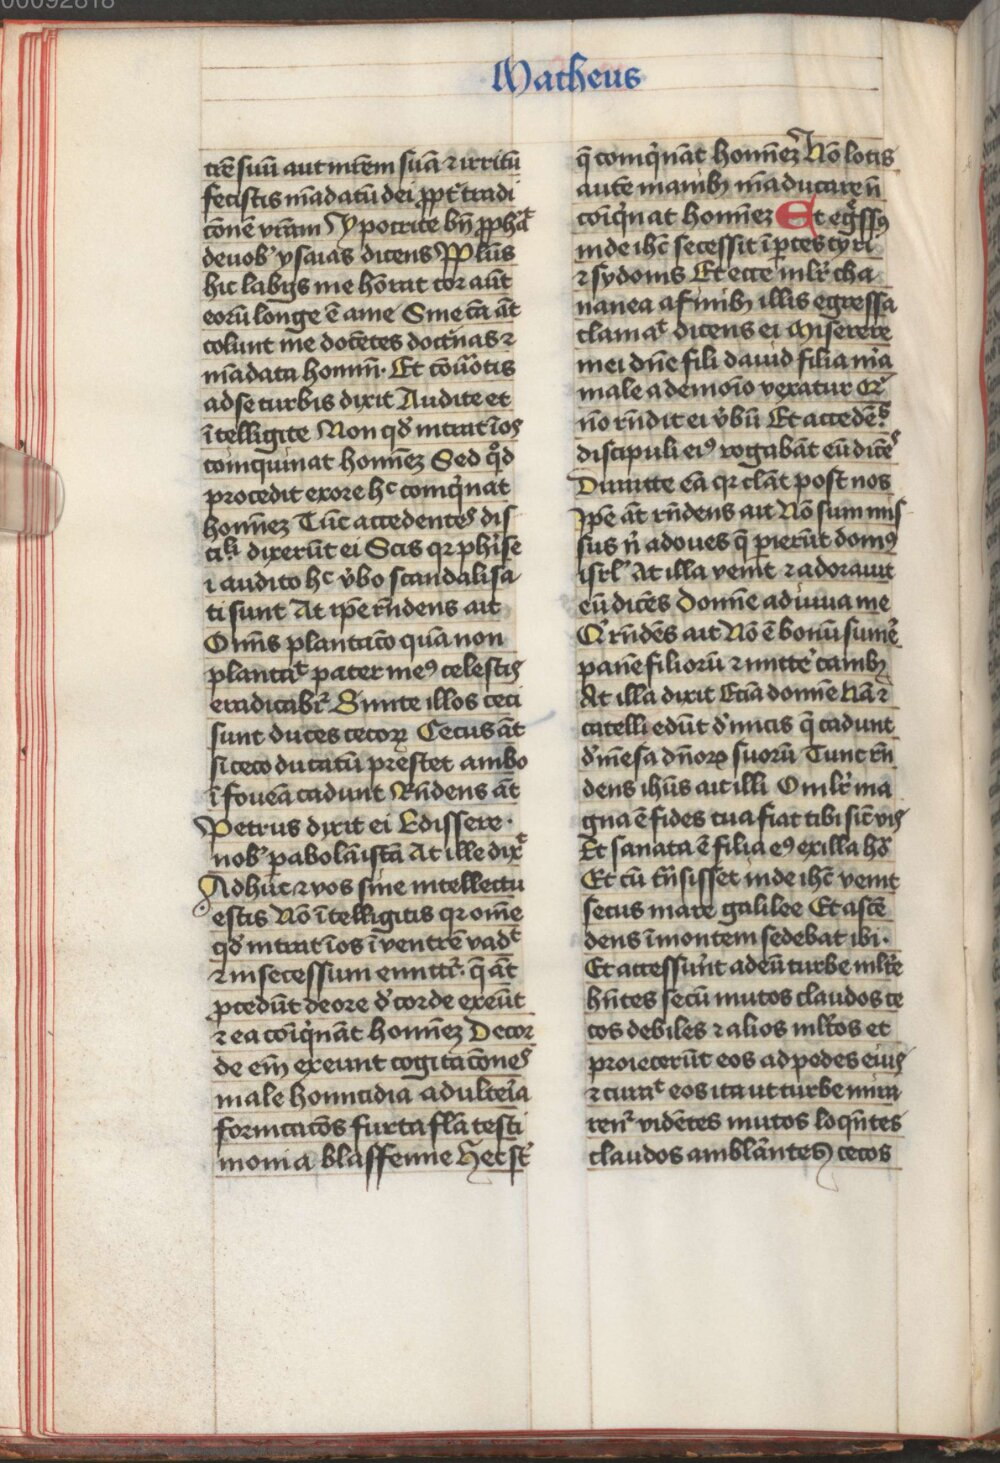 00092818
Matheus
trē suū aut mr̄em suā ⁊ irritū
fecistis mādatū dei ꝓpt᷑ tradi
cōnē vr̄am Ypocrite bn̄ ꝓph᷑a
de uob᷒ ysaias dicens Pplūs
hic labijs me hōrat cor aūt
eorū longe ē a me Sine cā āt
colunt me docētes doct͛nas ⁊
mādata homin̄· Et cōuocatis
ad se turbis dixit Audite et
ītelligite Non qd̓ intrat ī os
coinquinat hominē Sed qd̓
procedit ex ore hͨ coinq͛nat
hoīnez Tūc accedentes dis
cil͛i dixerūt ei Scis qꝛ phīse
i audito hͨ v̓bo scandalisa
ti sunt At ipē rn̄dens ait
Omīs plantaco quā non
plantāt pater meꝰ celestis
eradicabr᷑ Sinite illos ceci
sunt duces cecoꝝ Cecus āt
si ceco ducatū prestet ambo
ī foueā cadunt Rn̄dens āt
Petrus dixit ei Edissere·
nob᷒ pabolā istā At ille dix͛
Adhuc ⁊ vos sine intellectu
estis Nō ītelligitis qꝛ omē
qd̓ intrat ī os ī ventrē vad͛
⁊ in secessum emittr᷑· q̄ āt
ꝓcedūt de ore d̓ corde exeūt
⁊ ea coīq͛nāt hoīnez De cor
de em̄ exeunt cogitacōnes
male homicidia adulteīa
fornicacōs furta fl̄a testi
monia blasffemie Hec st̄
q̄ coinq͛nāt hoīnez Nō lotis
autē manibꝫ māducare n̄
coīq͛nat hoīnez Et eg͛ssꝰ
inde ihc̄ secessit ī ptes tyri
⁊ sydonis Et ecce mlr͛ cha
nanea a finibꝫ illis egressa
clamat͛ dicens ei Miserere
mei dn̄e fili dauid filia m̄a
male a demoīo vexatur Q͛
nō rn̄dit ei v̓bū Et accedēs
discipuli eiꝰ rogabāt eū dicēs
Dimitte eā qꝛ clāt post nos
Ipē āt rn̄dens ait Nō sum mis
sus n̄ ad oues q̄ pierūt domꝰ
isrl᷑ At illa venit ⁊ adorauit
eū dicēs Domīe adiuua me
Q͛ rn̄dēs ait Nō ē bonū sum̄e
panē filiorū ⁊ mitte᷑ canibꝫ
At illa dixit Eciā domīe Nā ⁊
catelli edūt d̓ micis q̄ cadunt
d̓ mēsa dn̄oꝝ suorū Tunc rn̄
dens ihūs ait illi O mlr͛ ma
gna ē fides tua fiat tibi sic̄ vis
Et sanata ē filia eꝰ ex illa hō
Et cū tn̄sisset inde ihc̄ venit
secus mare galilee Et ascē
dens ī montem sedebat ibi·
Et accessūnt ad eū turbe mlt̄e
hn̄tes secū mutos claudos ce
cos debiles ⁊ alios mlt̄os et
proiecerūt eos ad pedes eius
⁊ curat͛ eos ita ut turbe mira
ren᷑ vidētes mutos loq̄ntes
claudos amblāntes cecos